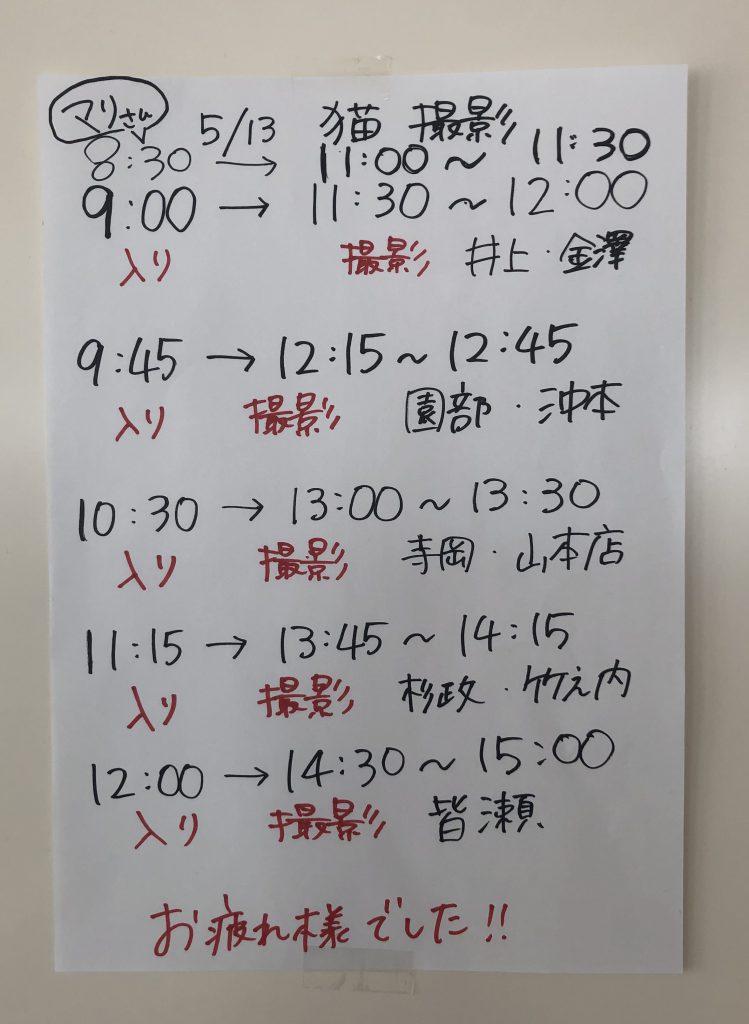 マリさん
5/13 猫 撮影
8:30 → 11:00 ~ 11:30
9:00 → 11:30 ~ 12:00
入り 撮影 井上・金澤
9:45 → 12:15 ~ 12:45
入り 撮影 園部・沖本
10:30 → 13:00 ~ 13:30
入り 撮影 寺岡・山本店
11:15 → 13:45 ~ 14:15
入り 撮影 杉政・竹之内
12:00 → 14:30 ~ 15:00
入り 撮影 皆瀬
お疲れ様でした!!